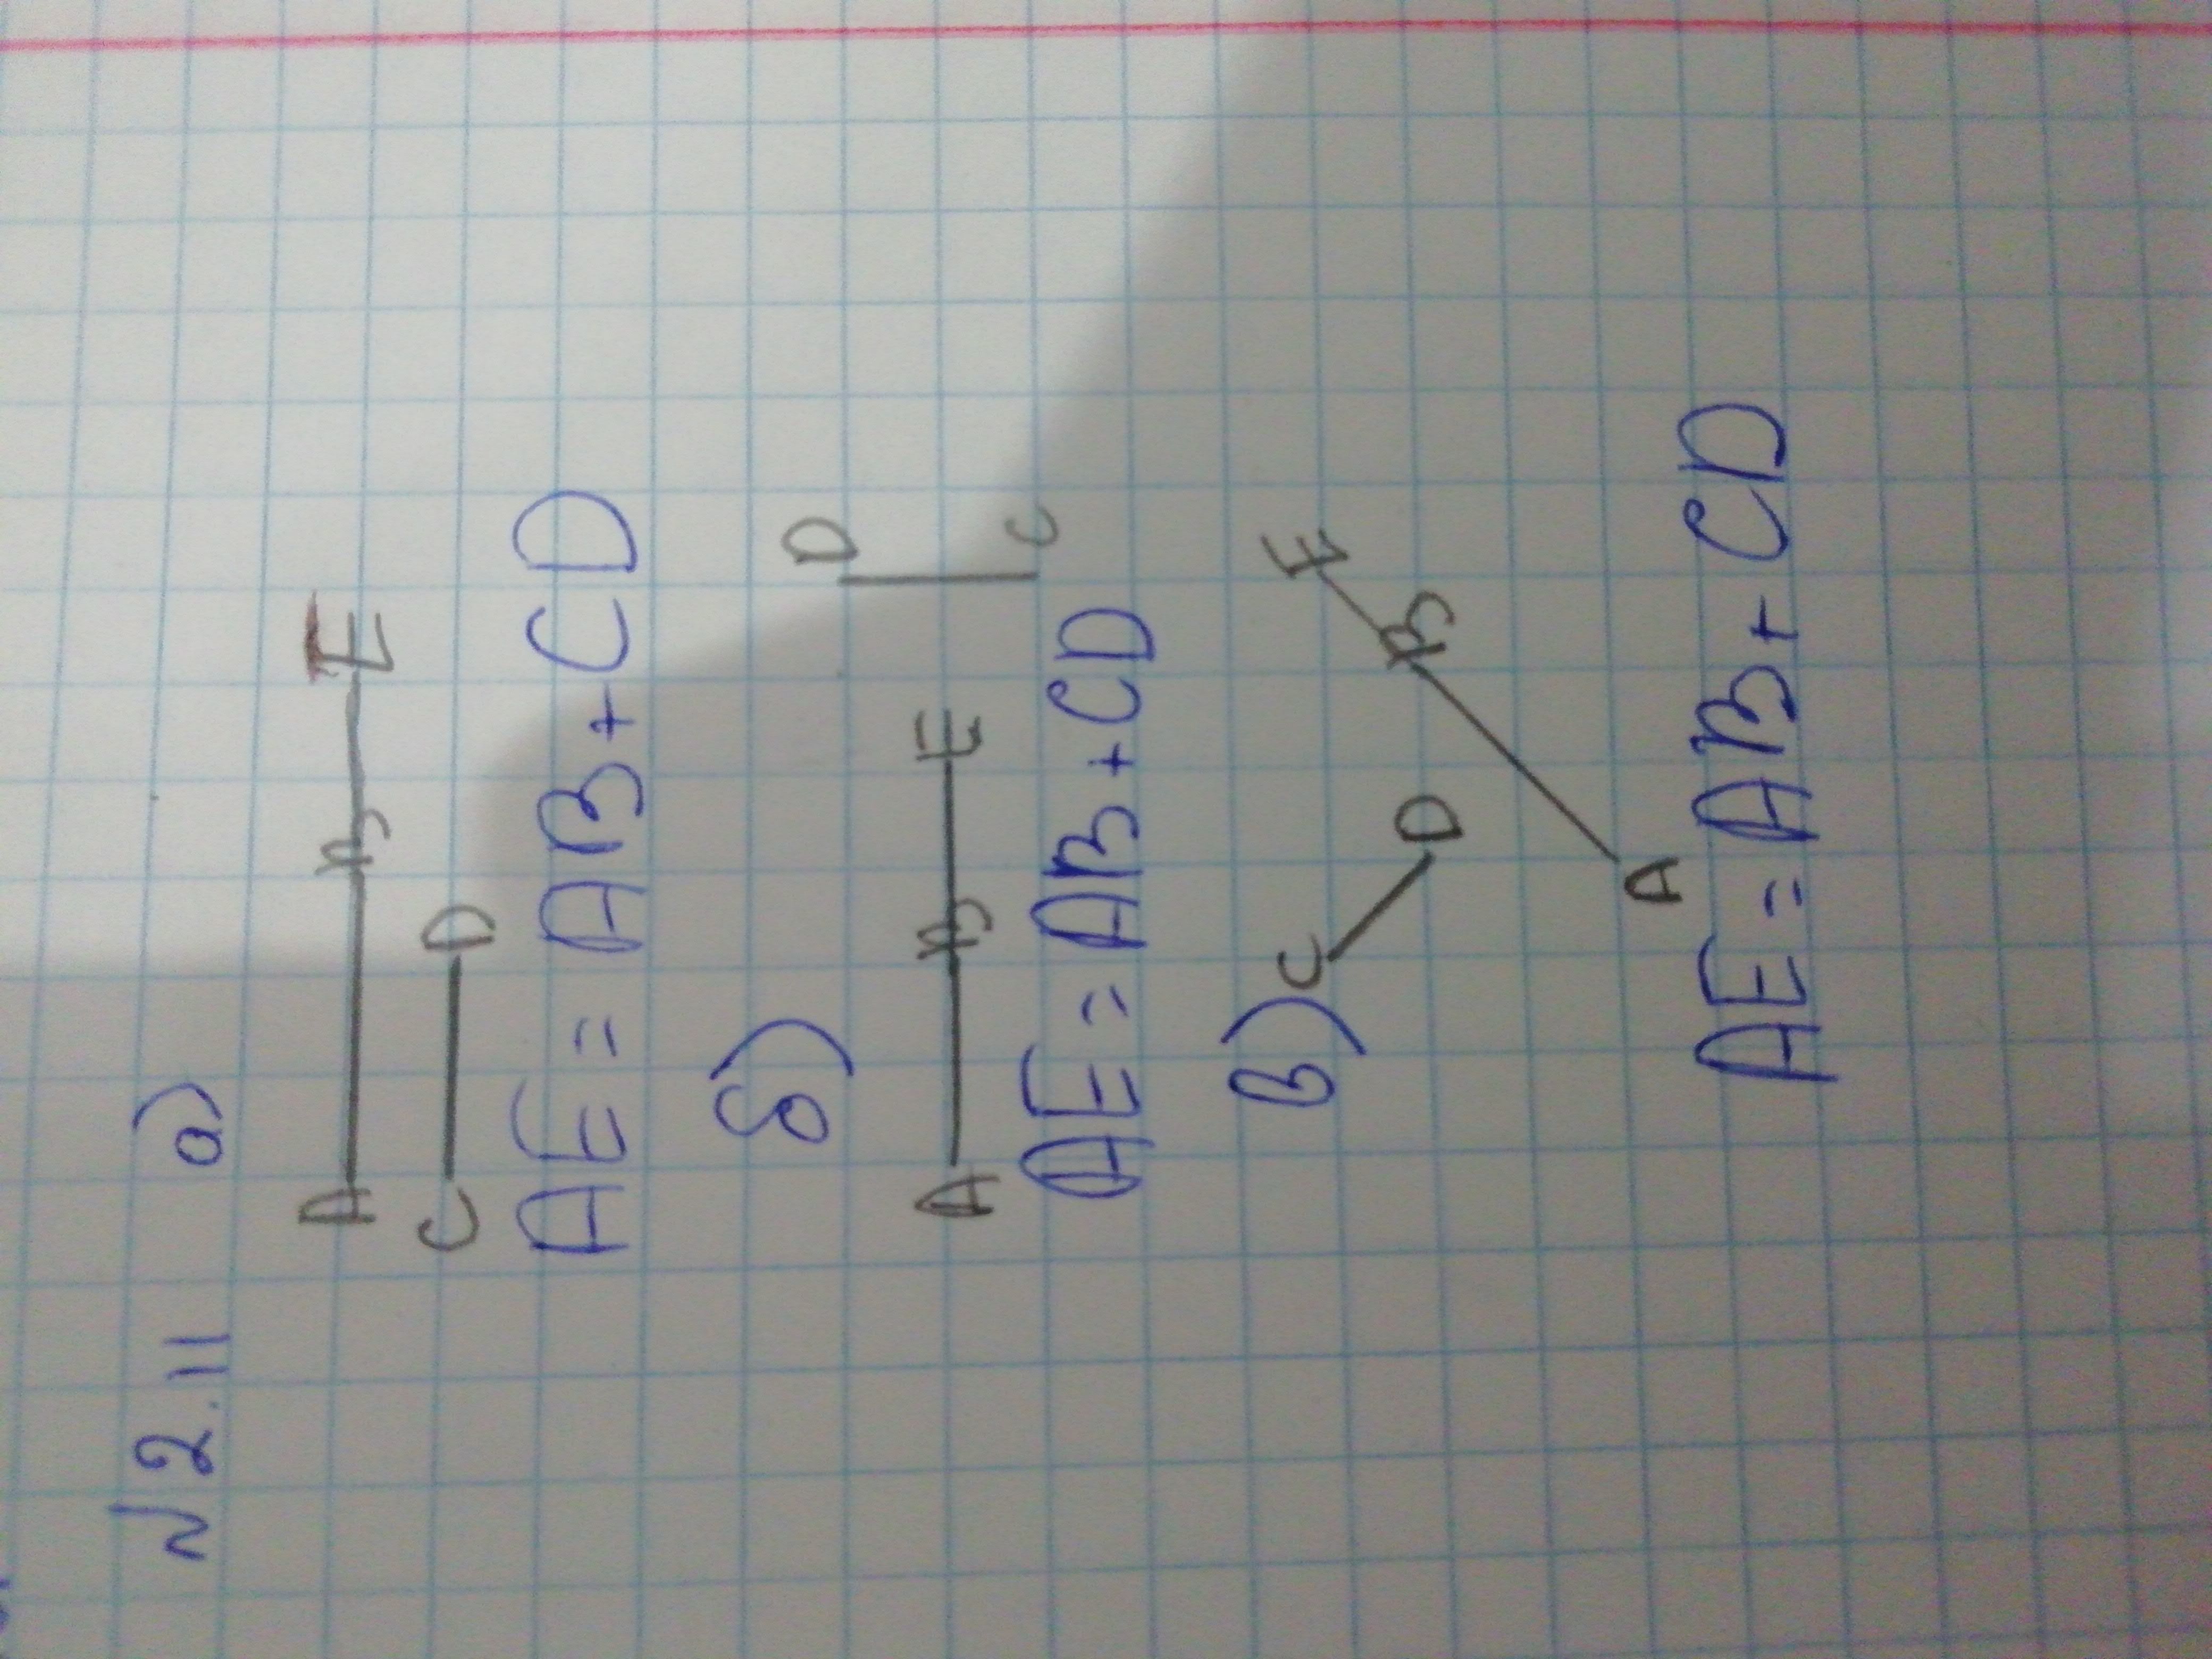 №2.11 a)
A B E
C D
AE = AB + CD
б)
D
A B E
C
AE = AB + CD
в)
C E
D B
A
AE = AB + CD